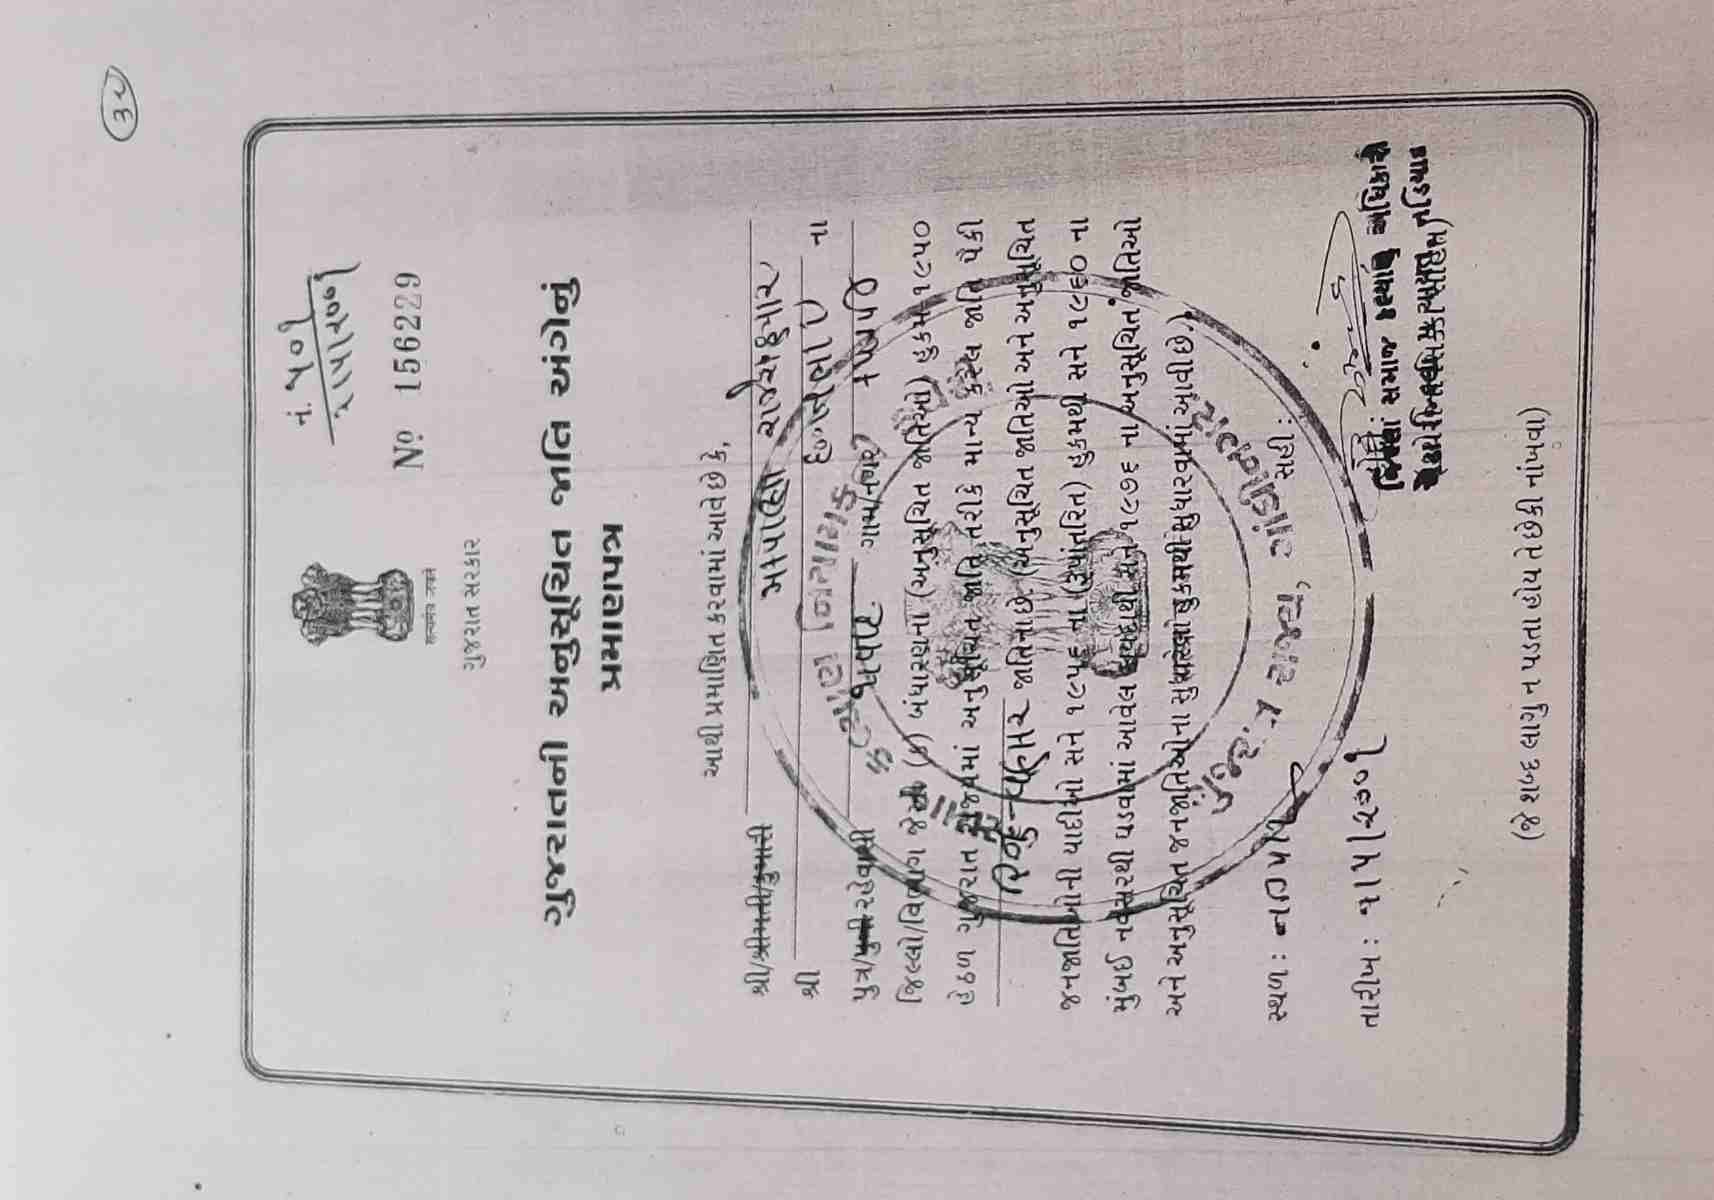 ૩૨
નં. ૫૦૧
૨।૫।૨૦૦૧
Nº 156229
सत्यमेव जयते
ગુજરાત સરકાર
ગુજરાતની અનુસૂચિત જાતિ અંગેનું
પ્રમાણપત્ર
આથી પ્રમાણિત કરવામાં આવે છે કે,
શ્રી/શ્રીમતી/કુમારી રાજેશકુમાર
શ્રી ના
પુત્ર/પુત્રી રહેવાસી ગામ/નગર
જિલ્લો/વિભાગ જેઓ બંધારણના (અનુસૂચિત જાતિઓ) હુકમ ૧૯૫૦
હેઠળ ગુજરાત રાજ્યમાં અનુસૂચિત જાતિ તરીકે માન્ય કરેલ જાતિ પૈકી
જાતિના છે. (અનુસૂચિત જાતિઓ અને અનુસૂચિત
જનજાતિઓની યાદીઓ સને ૧૯૫૬ ના (રૂપાંતરિત) હુકમથી સને ૧૯૬૦ ના
મુંબઈ નવેસરથી ઘડવામાં આવેલ કાયદાથી સને ૧૯૭૬ ના અનુસૂચિત જાતિઓ
અને અનુસૂચિત જનજાતિઓના સુધારેલા હુકમથી સુધારવામાં આવી છે.)
ગુજરાત રાજ્ય, ગાંધીનગર
સ્થળ : નડીયાદ સહી :
તારીખ : ૨।૫।૨૦૦૧
જિલ્લા સમાજ કલ્યાણ અધિકારી
નડિયાદ
(જે શબ્દ લાગુ ન પડતા હોય તે છેકી નાંખવા)